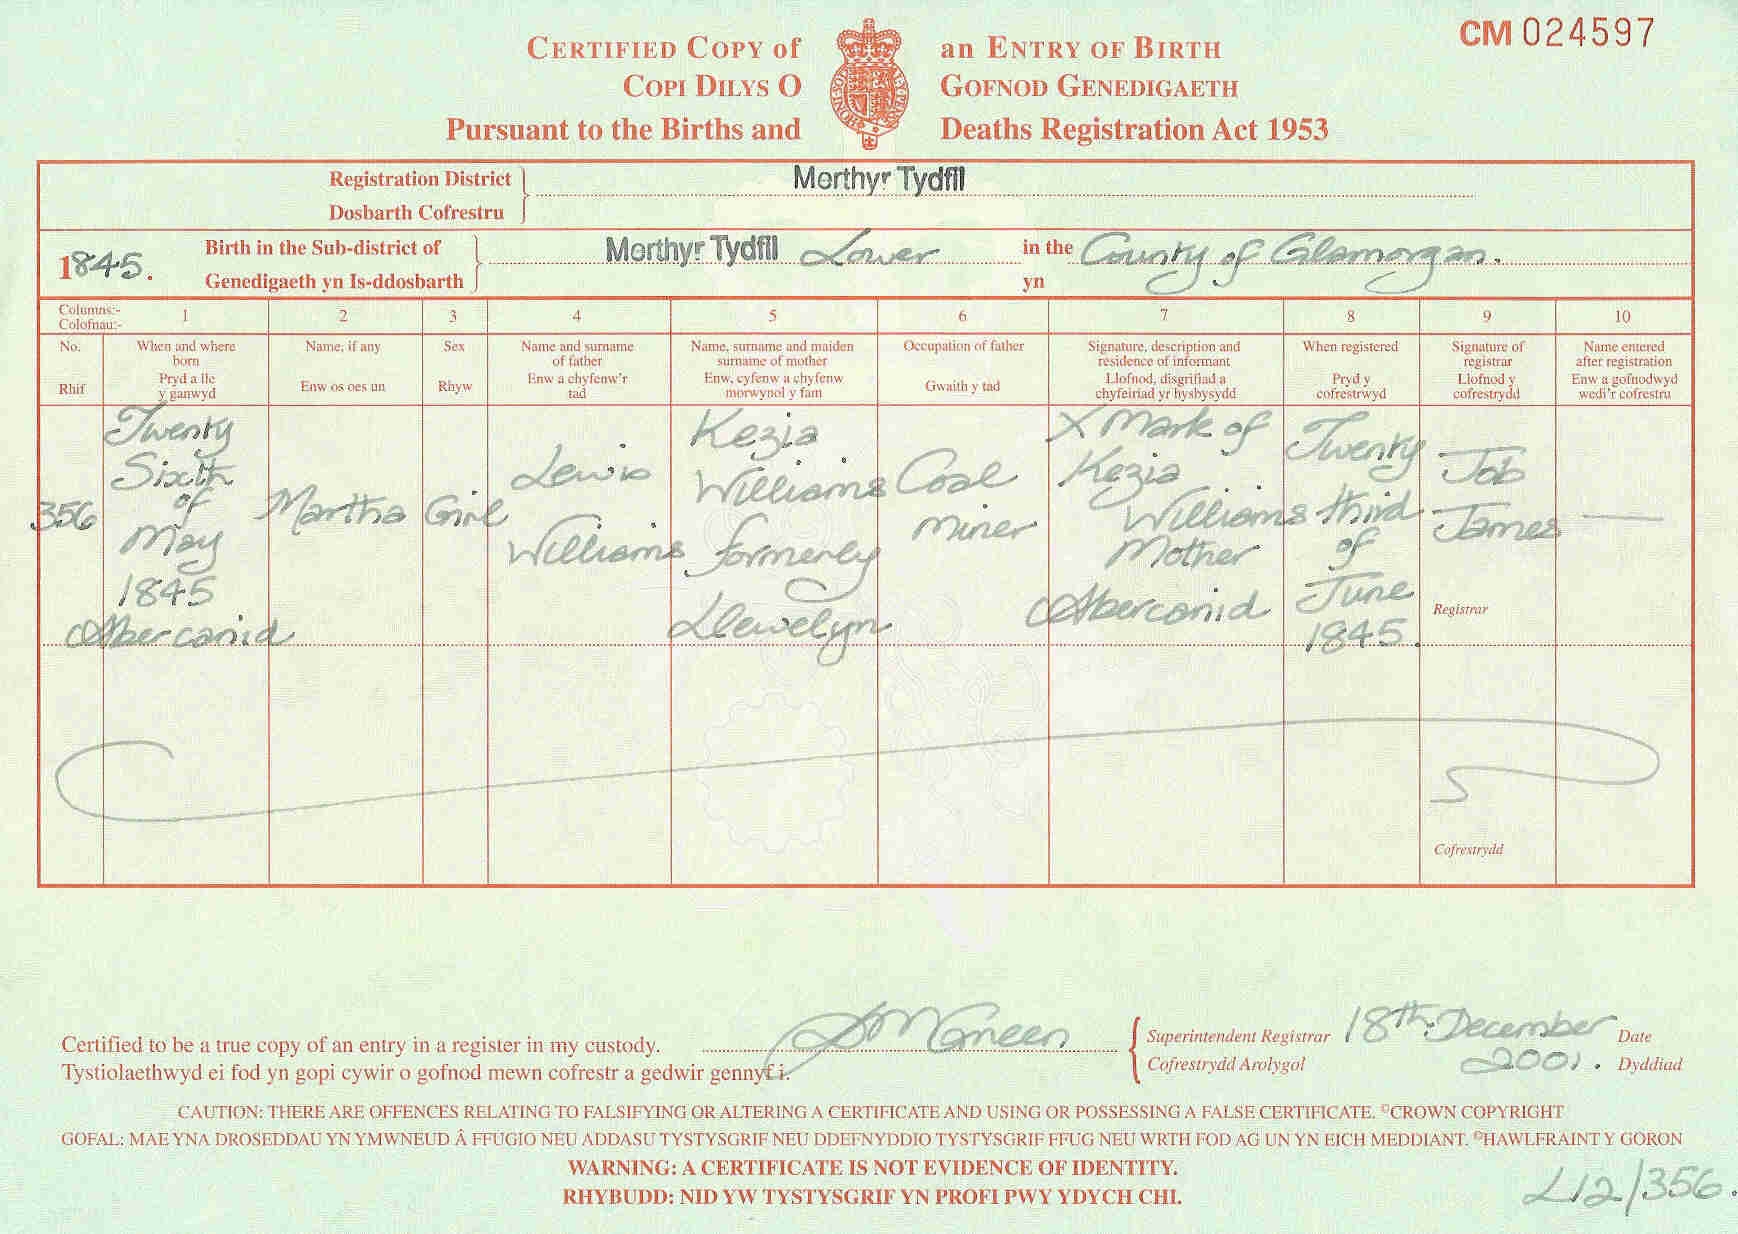 CERTIFIED COPY OF an ENTRY OF BIRTH
CM 024597
COPI DILYS O GOFNOD GENEDIGAETH
Pursuant to the Births and Deaths Registration Act 1953
Registration District Merthyr Tydfil
Dosbarth Cofrestru
1845. Birth in the Sub-district of Merthyr Tydfil Lower in the County of Glamorgan.
Genedigaeth yn Is-ddosbarth yn
Columns:- 1 2 3 4 5 6 7 8 9 10
Colofnau:-
No.
Rhif
When and where
born
Pryd a lle
y ganwyd
Name, if any
Enw os oes un
Sex
Rhyw
Name and surname
of father
Enw a chyfenw'r
tad
Name, surname and maiden
surname of mother
Enw, cyfenw a chyfenw
morwynol y fam
Occupation of father
Gwaith y tad
Signature, description and
residence of informant
Llofnod, disgrifiad a
chyfeiriad yr hysbysydd
When registered
Pryd y
cofrestrwyd
Signature of
registrar
Llofnod y
cofrestrydd
Name entered
after registration
Enw a gofnodwyd
wedi'r cofrestru
356
Twenty
Sixth
of
May
1845
Abercanid
Martha
Girl
Lewis
Williams
Kezia
Williams
formerly
Llewelyn
Coal
Miner
X Mark of
Kezia
Williams
Mother
Abercanid
Twenty
third
of
June
1845.
Job
James
Registrar
—
Cofrestrydd
Certified to be a true copy of an entry in a register in my custody.
Tystiolaethwyd ei fod yn gopi cywir o gofnod mewn cofrestr a gedwir gennyf i.
Green
Superintendent Registrar
Cofrestrydd Arolygol
18th December
2001.
Date
Dyddiad
CAUTION: THERE ARE OFFENCES RELATING TO FALSIFYING OR ALTERING A CERTIFICATE AND USING OR POSSESSING A FALSE CERTIFICATE. ©CROWN COPYRIGHT
GOFAL: MAE YNA DROSEDDAU YN YMWNEUD Â FFUGIO NEU ADDASU TYSTYSGRIF NEU DDEFNYDDIO TYSTYSGRIF FFUG NEU WRTH FOD AG UN YN EICH MEDDIANT. ©HAWLFRAINT Y GORON
WARNING: A CERTIFICATE IS NOT EVIDENCE OF IDENTITY.
RHYBUDD: NID YW TYSTYSGRIF YN PROFI PWY YDYCH CHI.
L12/356.